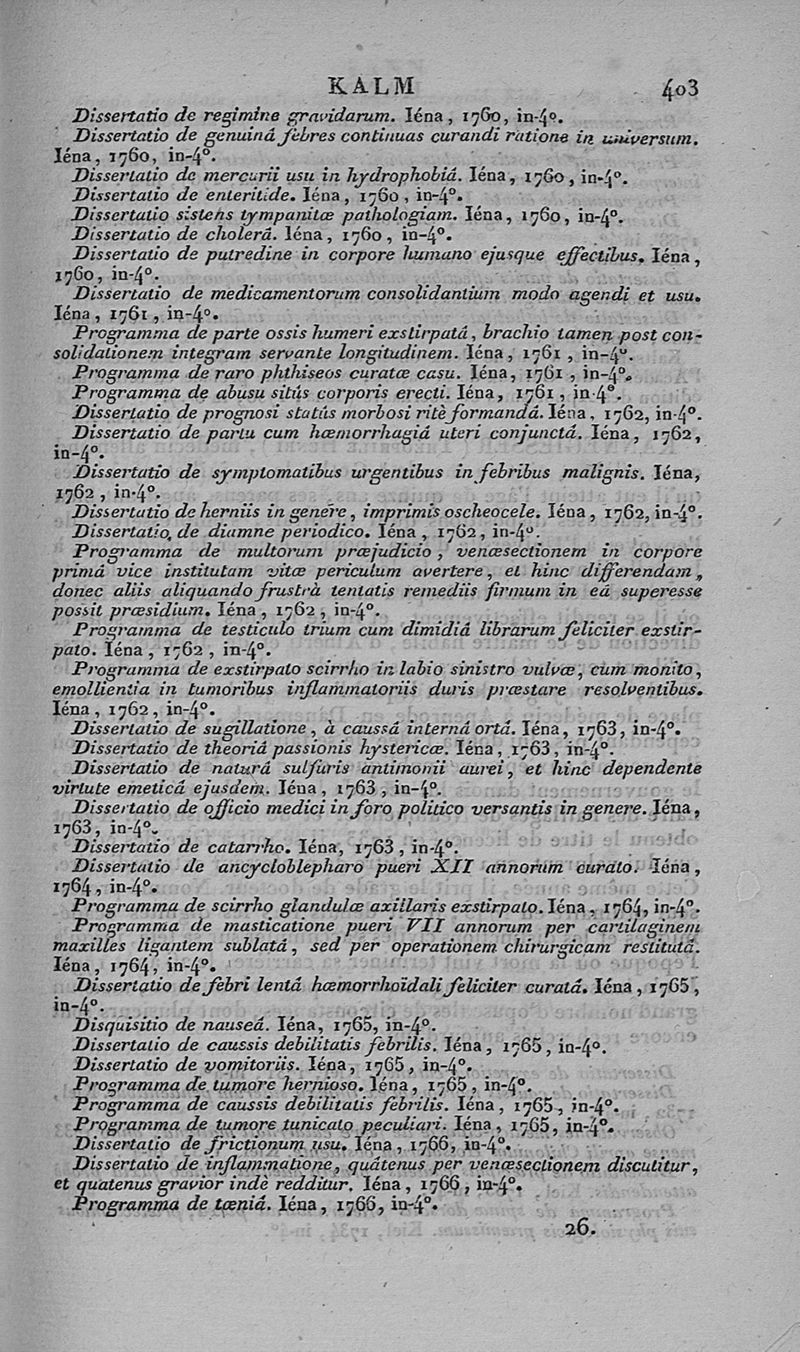 KALM 403
Dissertatio de regimine gravidarum. Iéna, 1760, in-4°.
Dissertatio de genuinâ febres continuas curandi ratione in universum.
Iéna, 1760, in-4°.
Dissertatio de mercurii usu in hydrophobiâ. Iéna, 1760, in-4°.
Dissertatio de enteritide. Iéna, 1760, in-4°.
Dissertatio sistens tympanitæ pathologiam. Iéna, 1760, in-4°.
Dissertatio de cholerâ. Iéna, 1760, in-4°.
Dissertatio de putredine in corpore humano ejusque effectibus. Iéna,
1760, in-4°.
Dissertatio de medicamentorum consolidantium modo agendi et usu.
Iéna, 1761, in-4°.
Programma de parte ossis humeri exstirpatâ, brachio tamen post con-
solidationem integram servante longitudinem. Iéna, 1761, in-4°.
Programma de raro phthiseos curatæ casu. Iéna, 1761, in-4°.
Programma de abusu sitûs corporis erecti. Iéna, 1761, in-4°.
Dissertatio de prognosi statûs morbosi ritè formandâ. Iéna, 1762, in-4°.
Dissertatio de partu cum hæmorrhagiâ uteri conjunctâ. Iéna, 1762,
in-4°.
Dissertatio de symptomatibus urgentibus in febribus malignis. Iéna,
1762, in-4°.
Dissertatio de herniis in genere, imprimis oscheocele. Iéna, 1762, in-4°.
Dissertatio, de diamne periodico. Iéna, 1762, in-4°.
Programma de multorum præjudicio, venæsectionem in corpore
primâ vice institutam vitæ periculum avertere, et hinc differendam,
donec aliis aliquando frustrà tentatis remediis firmum in eâ superesse
possit præsidium. Iéna, 1762, in-4°.
Programma de testiculo trium cum dimidiâ librarum feliciter exstir-
pato. Iéna, 1762, in-4°.
Programma de exstirpato scirrho in labio sinistro vulvæ, cum monito,
emollientia in tumoribus inflammatoriis duris præstare resolventibus.
Iéna, 1762, in-4°.
Dissertatio de sugillatione, à caussâ internâ ortâ. Iéna, 1763, in-4°.
Dissertatio de theoriâ passionis hystericæ. Iéna, 1763, in-4°.
Dissertatio de naturâ sulfuris antimonii aurei, et hinc dependente
virtute emeticâ ejusdem. Iéna, 1763, in-4°.
Dissertatio de officio medici in foro politico versantis in genere. Iéna,
1763, in-4°.
Dissertatio de catarrho. Iéna, 1763, in-4°.
Dissertatio de ancycloblepharo pueri XII annorum curato. Iéna,
1764, in-4°.
Programma de scirrho glandulæ axillaris exstirpato. Iéna, 1764, in-4°.
Programma de masticatione pueri VII annorum per cartilaginem
maxilles ligantem sublatâ, sed per operationem chirurgicam restitutâ.
Iéna, 1764, in-4°.
Dissertatio de febri lentâ hæmorrhoïdali feliciter curatâ. Iéna, 1765,
in-4°.
Disquisitio de nauseâ. Iéna, 1765, in-4°.
Dissertatio de caussis debilitatis febrilis. Iéna, 1765, in-4°.
Dissertatio de vomitoriis. Iéna, 1765, in-4°.
Programma de tumore hernioso. Iéna, 1765, in-4°.
Programma de caussis debilitatis febrilis. Iéna, 1765, in-4°.
Programma de tumore tunicato peculiari. Iéna, 1765, in-4°.
Dissertatio de frictionum usu. Iéna, 1766, in-4°.
Dissertatio de inflammatione, quâtenus per venæsectionem discutitur,
et quatenus gravior indè redditur. Iéna, 1766, in-4°.
Programma de tæniâ. Iéna, 1766, in-4°.
26.